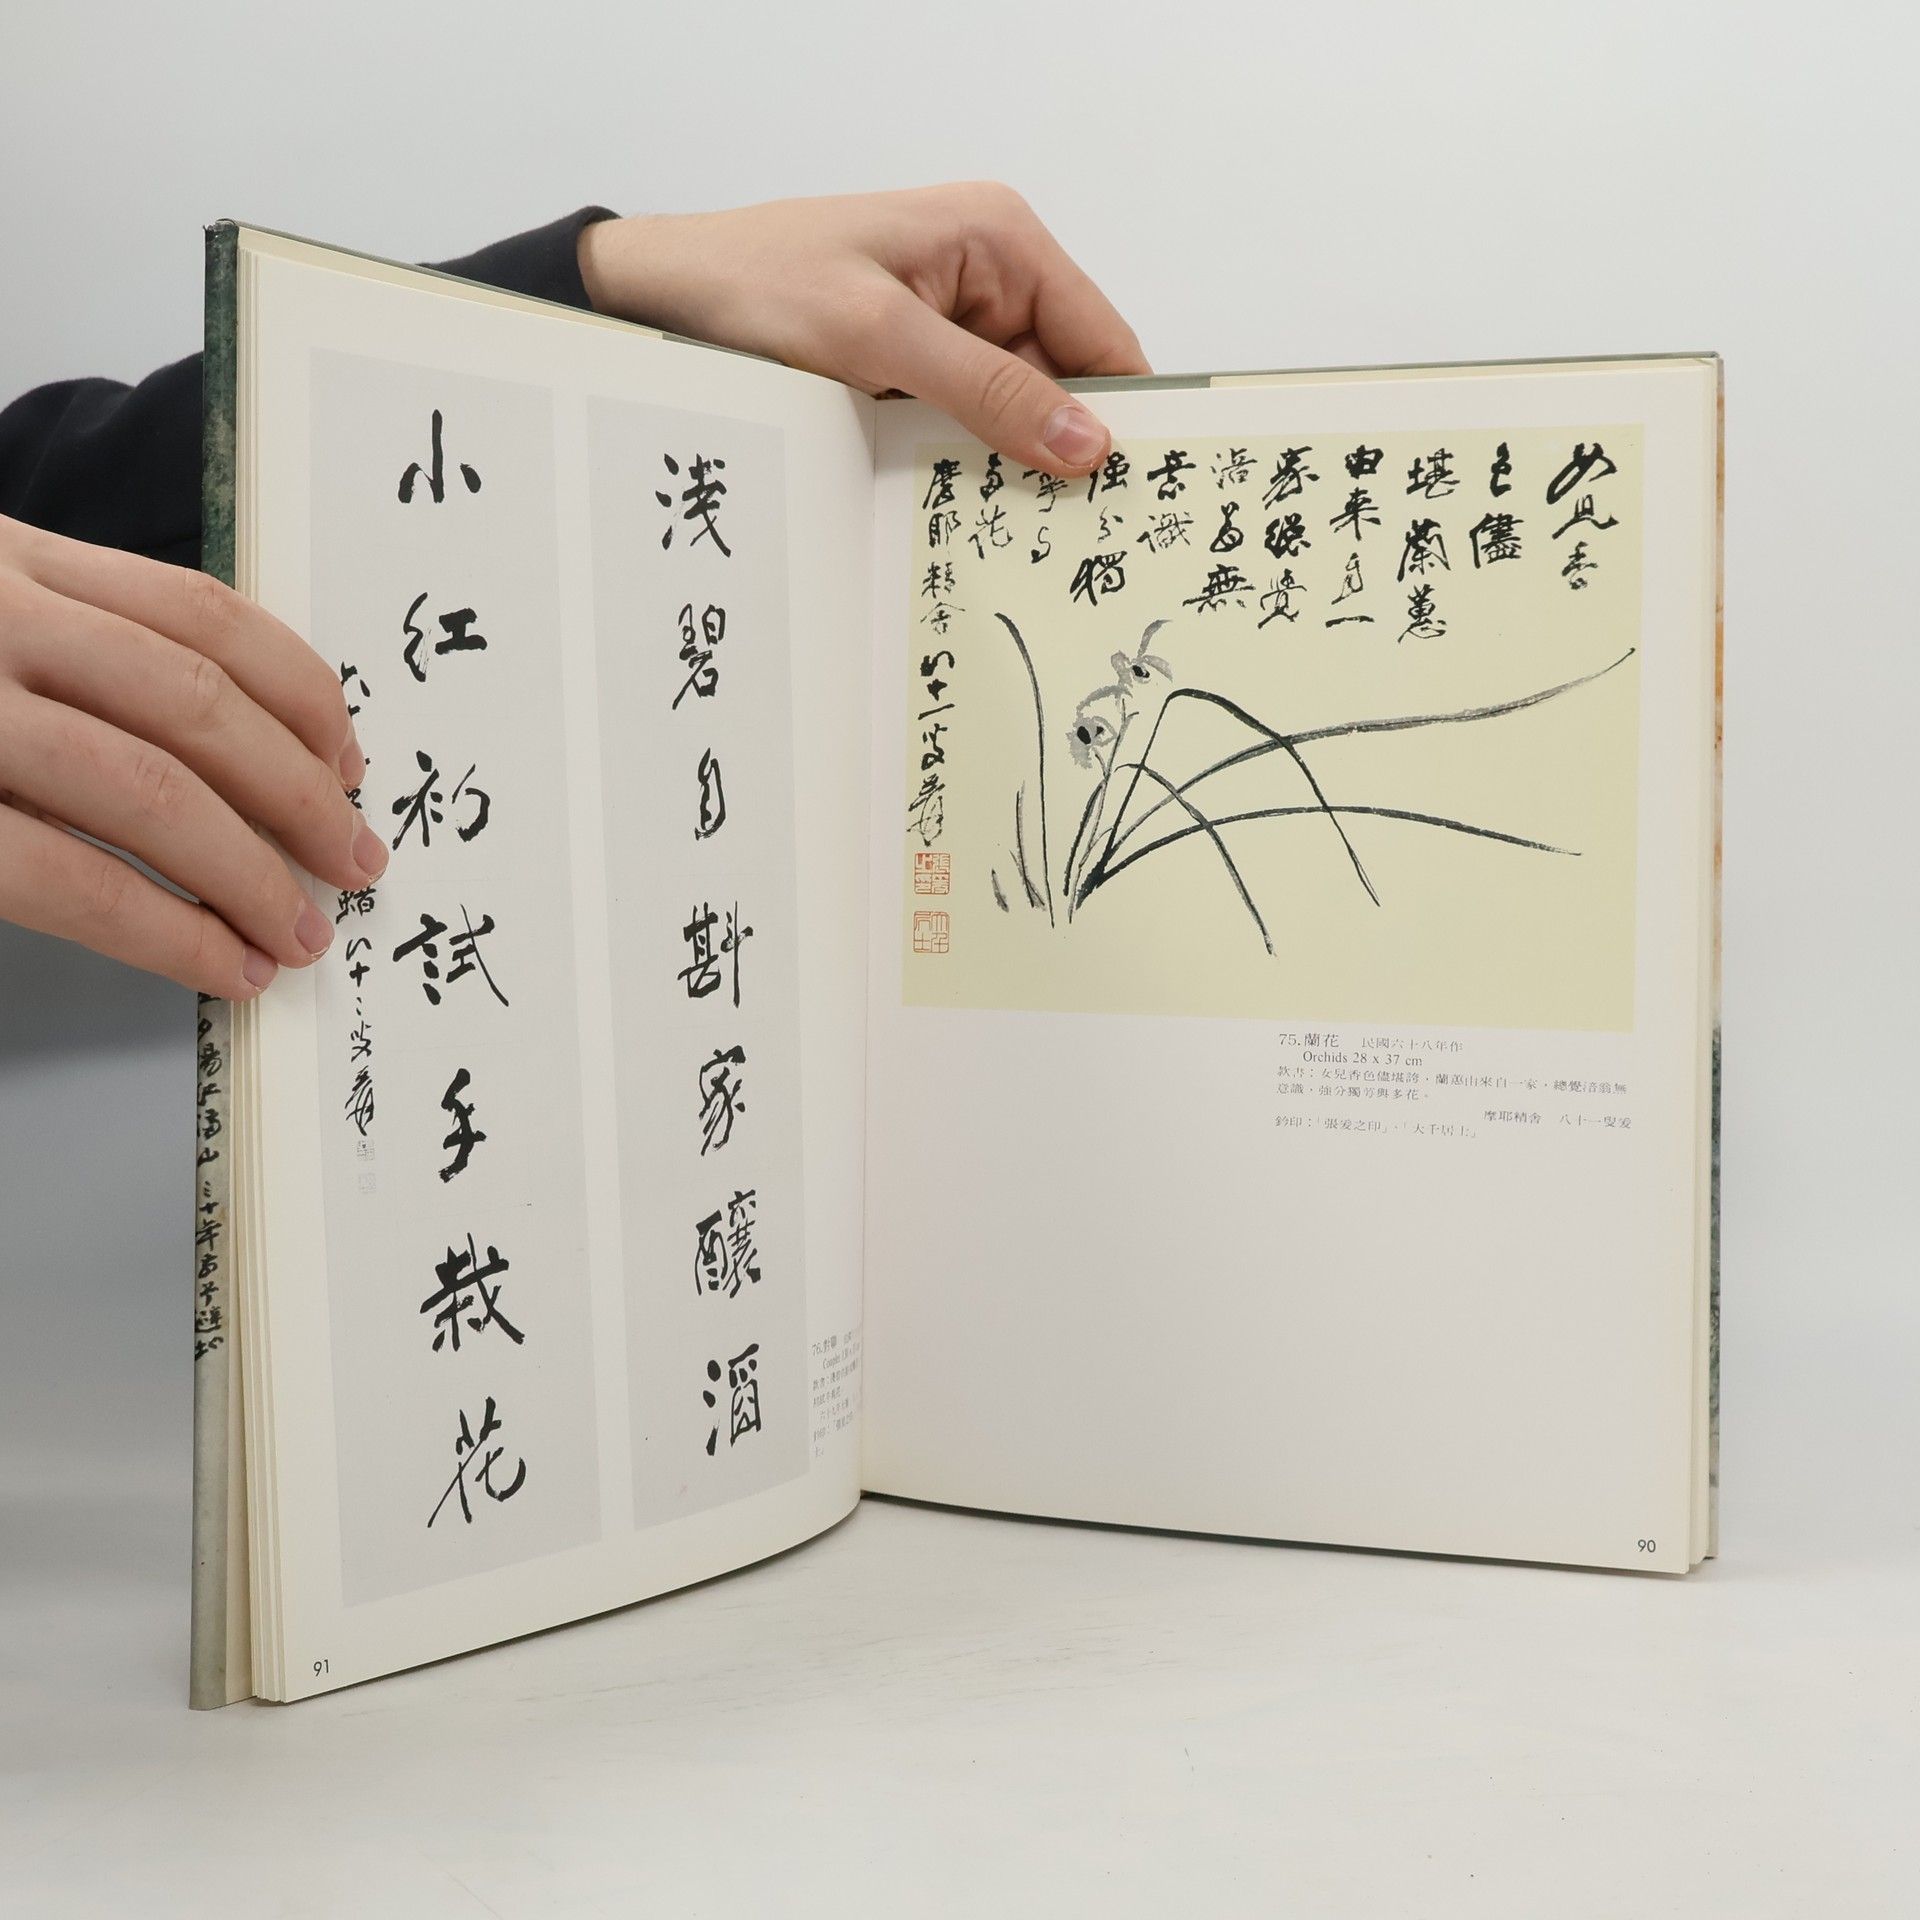 女兒香
色儘
堪
蘭蕙
由来自一
家總覺
涪翁無
意識
强分獨
与
多花
摩耶精舍 八十一叟爰
75.蘭花 民國六十八年作
Orchids 28 x 37 cm
款書：女兒香色儘堪誇，蘭蕙由來自一家，總覺涪翁無
意識，強分獨芳與多花。
摩耶精舍 八十一叟爰
鈐印：「張爰之印」、「大千居士」
90
淺碧自斟家釀酒
小紅初試手栽花
蜡 八十二叟爰
76.對聯
Couplet
91